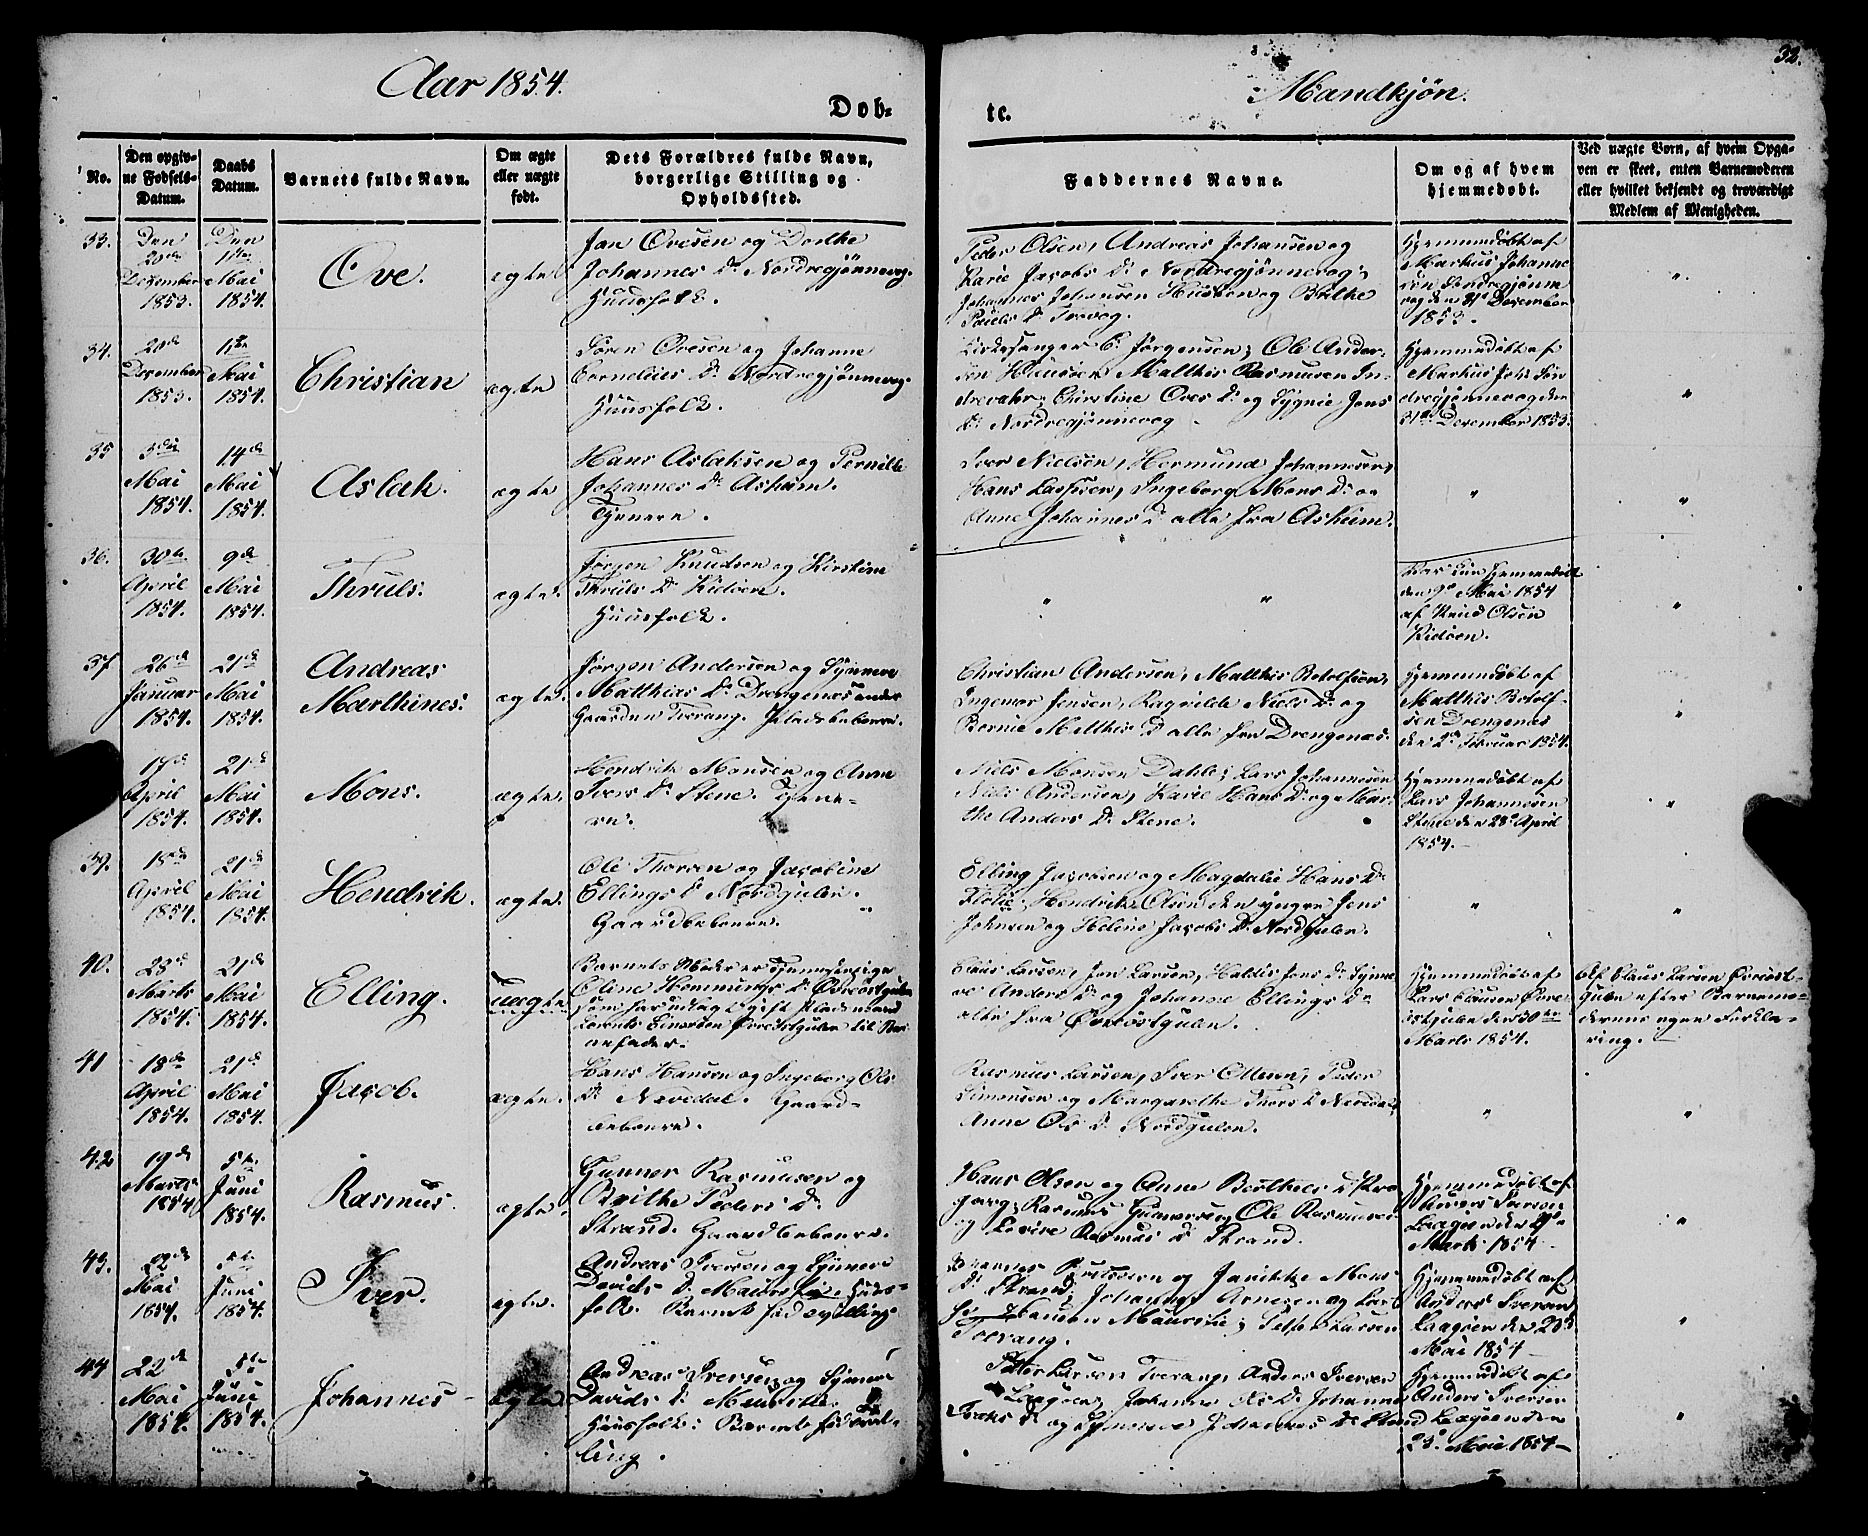 32.
Aar 1854.
Mandkjøn.
Dob=
te.
No.
Den opgiv-
ne Fødsels-
Datum.
Daabs
Datum.
Barnets fulde Navn.
Om ægte
eller uægte
født.
Dets Forældres fulde Navn,
borgerlige Stilling og
Opholdssted.
Faddernes Navne.
Om og af hvem
hjemmedøbt.
Ved uægte Børn, af hvem Opga-
ven er skeet, enten Barnemoderen
eller hvilket bekjendt og troværdigt
Medlem af Menigheden.
33.
Den
20de
Dezember
1853.
Den
11te
Mai
1854.
Ove.
ægte
Jan Ovesen og Dorthe
Johannes Dr Nordregjønnevog.
Huusfolk.
Peder Olsen, Andreas Johansen og
Karie Jacobs Dr Nordregjønnevog;
Johannes Johansen og
Dr Trovog.
Hjemmedøbt af
Markus Johanne
sen Søndregjønne
vog den 21d Desember
1853.
"
34.
20de
Desember
1853.
11te
Mai
1854.
Christian
ægte
Søren Ovesen og Johanne
Cornelius Dr Nordregjønnevog.
Huusfolk.
Kirkesanger C. Jørgensen, Ole Ander-
sen Matthis Rasmusen In-
drevahr; Christine Oves Dr og Sygnie Jens
Dr Nordregjønnevog
Hjemmedøbt af
Markus Joh: Søn
dregjønnevog den
21de Desember 1853.
"
35
3die
Mai
1854.
14de
Mai
1854.
Aslak.
ægte
Hans Aslaksen og Pernille
Johannes Dr Asheim.
Tjenere.
Iver Nielsen, Hermund Johannesen,
Hans Lassesen, Ingeborg Mons Dr og
Anne Johannes Dr alle fra Asheim.
"
"
36.
30te
April
1854.
9de
Mai
1854.
Thruls.
ægte.
Jørgen Knudsen og Kirstine
Thruls Dr Kidøen.
Huusfolk.
"
"
Hjemmedøbt
den 9d Mai 1854
af Knud Olsen
Kidøen.
"
37
26de
Januar
1854.
21de
Mai
1854.
Andreas
Marthines.
ægte.
Jørgen Andersen og Synneve
Matthias Dr Drengenæs under
Gaarden Tverang. Pladsbeboere.
Christian Andersen, Matthis Botolfsen,
Ingemor Jensen, Ragnilde Niels Dr og
Bernie Matthis Dr alle fra Drengenæs.
Hjemmedøbt af
Matthis Botolf-
sen Drengenæs
den 2den Februar 1854.
"
17de
April
1854.
21de
Mai
1854.
Mons.
ægte.
Hendrik Monsen og Anne
Ivers Dr Stene. Tjene-
re.
Niels Monsen Dahle; Lars Johannesen
Niels Andersen, Karie Hans Dr og Mar-
the Anders Dr Stene.
Hjemmedøbt af
Lars Johannesen
Stene den 28d April
1854.
"
39.
18de
April
1854.
21de
Mai
1854.
Hendrik.
ægte.
Ole Thorsen og Jacobine
Ellings Dr Nordgulen.
Gaardbeboere.
Elling Jacobsen og Magdalie Hans Dr
Flolie; Hendrik Olsen den yngre, Jens
Johnsen og Helene Jacobs Dr Nordgulen.
"
"
40.
28de
Marts
1854.
21de
Mai
1854.
Elling.
uægte
Barnets Moder er Tjenestepige
Oline Hemmings Dr Øvreøstgulen
som har udlagt gift Pladsmand
Øvreøstgulen til Bar
nefader.
Claus Larsen, Jon Larsen, Holdis Jens Dr Synne
ve Anders Dr og Johanne Ellings Dr
alle fra Øvreøstgulen.
Hjemmedøbt af
Lars Clausen Øvre
østgulen den 30te
Marts 1854.
Af Claus Larsen Øvreøst-
gulen efter Barnemo-
derens egen Forkla-
ring.
41
18de
April
1854.
21de
Mai
1854.
Jacob.
ægte.
Hans Hansen og Ingeborg Ols
Dr Nevedal. Gaard-
beboere.
Rasmus Larsen, Iver Ellesen, Peder
Simonsen og Margarethe Thors Dr Nevedal,
Anne Ols Dr Nordgulen.
"
"
42
19de
Marts
1854
5te
Juni
1854.
Rasmus.
ægte.
Gunner Rasmusen og
Brithe Peders Dr
Strand. Gaardbeboere.
Hans Olsen og Anne Berthels Dr
Rasmus Gunnersen, Ole Rasmusen
og Lovise Rasmus Dr Strand.
Hjemmedøbt af
Anders Iversen
Laagøen den
Marts 1854
"
43.
22de
Mai
1854.
5te
Juni
1854.
Iver.
ægte.
Andreas Iversen og Synneve
Davids Dr Huus-
folk. Barnet født Tvilling
og Jannikke Mons
Dr Strand; Johannes Arnesen og Lars
Clausen Mauritie; Larsen
Tverang.
Hjemmedøbt af
Anders Iversen
Laagøen den 23d
Mai 1854
"
44
22de
Mai
1854.
5te
Juni
1854.
Johannes
ægte
Andreas Iversen og Synneve
Davids Dr
Huusfolk. Barnet født Tvil-
ling.
Peter Larsen Tverang, Anders Iversen
Laagøen, Johanne Ols Dr Johanne
Dr og Synneve Johannes Dr Strand
Hjemmedøbt af
Anders Iversen
Laagøen den
23d Mai 1854
"